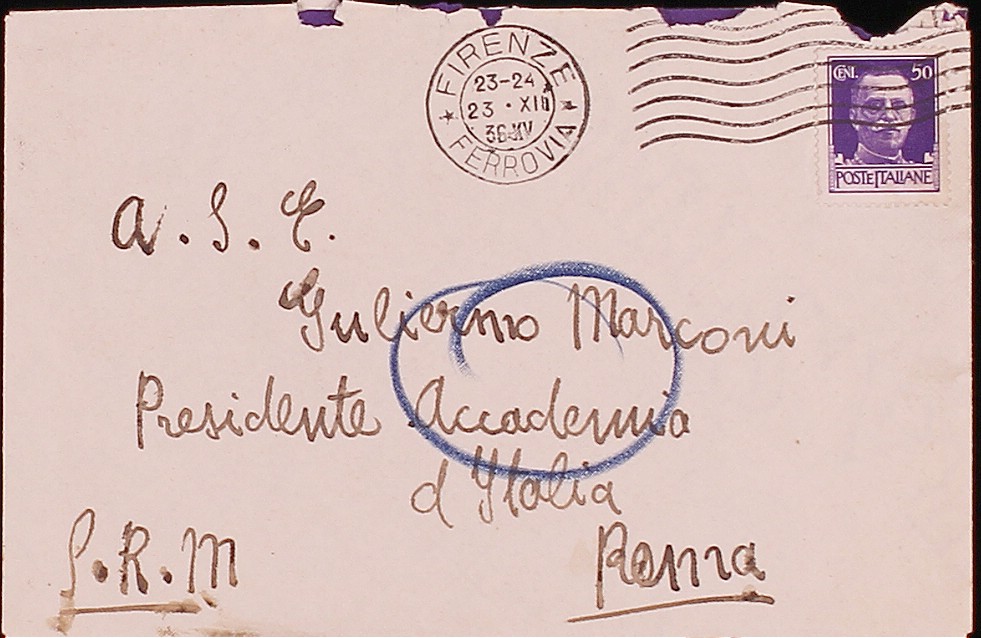 FIRENZE
23-24
23 · XII
36-XV
FERROVIA
CENT. 50
POSTE ITALIANE
A. S. E.
Guliermo Marconi
Presidente Accademia
d'Italia
S.R.M
Roma